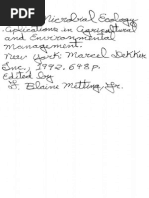 Microbial Ecology
Applications in Agricultural
and Environmental
Management.
New York: Marcel Dekker
Inc., 1992. 698 p.
Edited by
F. Blaine Metting, Jr.